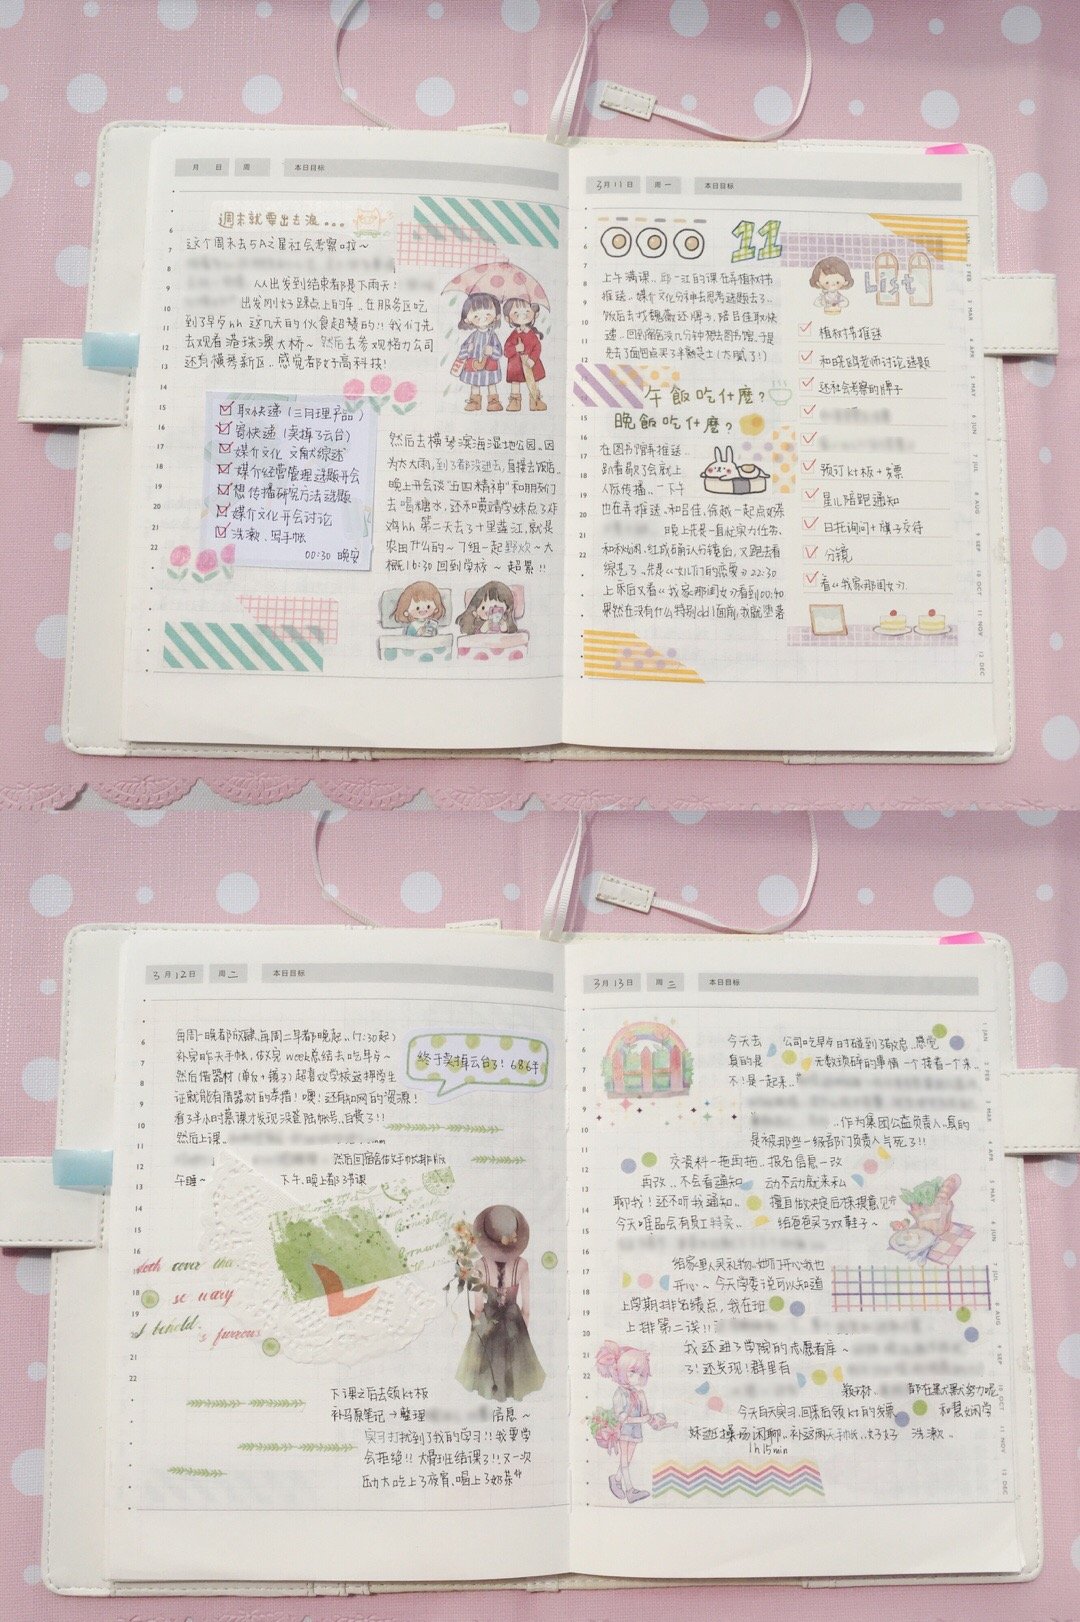 月 日 周 本日目标
週末就要出去浪...
这个周末去与A之星社会考察啦~
从出发到结束都是下雨天!
出发刚好踩点上的车..在服务区吃
到了早夕hh 这几天的伙食超赞的!! 我们先
去观看港珠澳大桥~ 然后去参观格力公司
还有横琴新区..感觉都好高科技!
取快递(三月理产品)
寄快递(卖掉了云台)
媒介文化 文献综述
媒介经营管理选题开会
想传播研究方法选题
媒介文化开会讨论
洗漱、写手帐
00:30 晚安
然后去横琴滨海湿地公园、因
为太大雨,到了都没进去,直接去饭店..
晚上开会谈"五四精神"和朋友们
去喝糖水,还和黄靖学妹点了炸
鸡hh 第二天去了十里莲江,就是
农田什么的~ 了组一起野炊~大
概16:30回到学校~ 超累!!
3月11日 周一 本日目标
11
List
上午满课..邱一江的课在弄植树节
推送..媒介文化分神去思考选题去了..
饭后去找魏薇还牌子,陪吕佳取快
递..回到宿舍没几分钟想去图书馆,于是
先去了面包点买了半熟芝士(太腻了!)
午飯吃什麼?
晚飯吃什麼?
在图书馆弄推送..
趴着歇了会就上
人际传播..一下午
也在弄推送..和吕佳、徐越一起点奶茶
晚上先是一直忙实力任务,
和秋娴、红成确认分镜后,又跑去看
综艺了..先是《女儿们的恋爱》22:30
上床后又看《我家那闺女》看到00:40
果然在没有什么特别ddl面前,我就堕落
植树节推送
和晓鸥老师讨论选题
还社会考察的牌子
预订kt板+发票
星儿陪跑通知
日托询问+旗子交待
分镜
看《我家那闺女》
3月12日 周二 本日目标
每周一晚都放肆,每周二早都晚起..(7:30起)
补完昨天手帐,做完week总结去吃早点~
然后借器材(单反+镜子)超喜欢学校这押学生
证就能有借器材的举措! 噢! 还有知网的资源!
看了半小时慕课才发现没登陆帐号,白费了!!
然后上课..
然后回宿舍做手帐排版
午睡~ 下午、晚上都3节课
终于卖掉云台了! 686千
下课之后去领kt板
补马原笔记→整理 信息~
实习打扰到了我的学习!! 我要学
会拒绝!! 大骨班结课了!! 又一次
在动大吃上了夜宵、喝上了奶茶
3月13日 周三 本日目标
今天去 公司吃早点时碰到了琉房..感觉
真的是 无数琐碎的事情一个接着一个来..
不!是一起来..
..作为集团公益负责人..真的
是被那些一级部门负责人与死了!!
交资料一拖再拖..报名信息一改
再改..不会看通知.. 动不动就来私
聊我! 还不听我通知.. 擅自做决定后才来提意见
今天唯品会有员工特卖.. 给爸爸买了双鞋子~
给家里人买礼物..她们开心我也
开心~ 今天学委说可以知道
上学期排名绩点,我在班
上排第二诶!!
我还进了学院的志愿者库~
了! 还发现!群里有
都在默默努力呢
今天白天实习..回来后领kt的发票 和慧娴学
妹逛操场闲聊..补这两天手帐..好好 洗漱..
1h15min